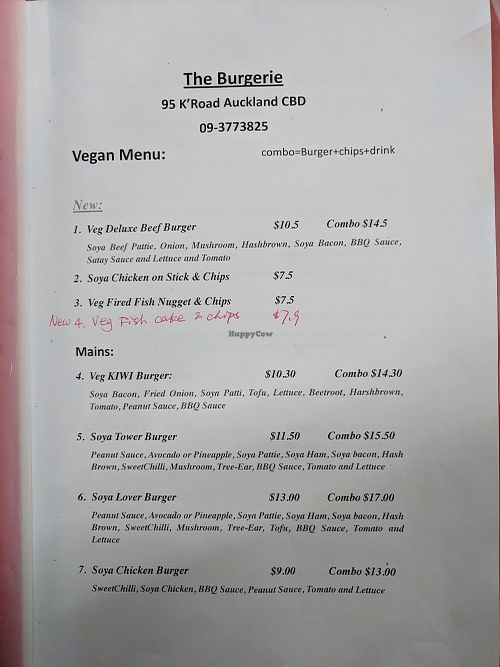 The Burgerie
95 K'Road Auckland CBD
09-3773825
Vegan Menu: combo=Burger+chips+drink
New:
1. Veg Deluxe Beef Burger $10.5 Combo $14.5
Soya Beef Pattie, Onion, Mushroom, Hashbrown, Soya Bacon, BBQ Sauce,
Satay Sauce and Lettuce and Tomato
2. Soya Chicken on Stick & Chips $7.5
3. Veg Fired Fish Nugget & Chips $7.5
New 4. Veg Fish cake & chips $7.9
HappyCow
Mains:
4. Veg KIWI Burger: $10.30 Combo $14.30
Soya Bacon, Fried Onion, Soya Patti, Tofu, Lettuce, Beetroot, Harshbrown,
Tomato, Peanut Sauce, BBQ Sauce
5. Soya Tower Burger $11.50 Combo $15.50
Peanut Sauce, Avocado or Pineapple, Soya Pattie, Soya Ham, Soya bacon, Hash
Brown, SweetChilli, Mushroom, Tree-Ear, BBQ Sauce, Tomato and Lettuce
6. Soya Lover Burger $13.00 Combo $17.00
Peanut Sauce, Avocado or Pineapple, Soya Pattie, Soya Ham, Soya bacon, Hash
Brown, SweetChilli, Mushroom, Tree-Ear, Tofu, BBQ Sauce, Tomato and
Lettuce
7. Soya Chicken Burger $9.00 Combo $13.00
SweetChilli, Soya Chicken, BBQ Sauce, Peanut Sauce, Tomato and Lettuce